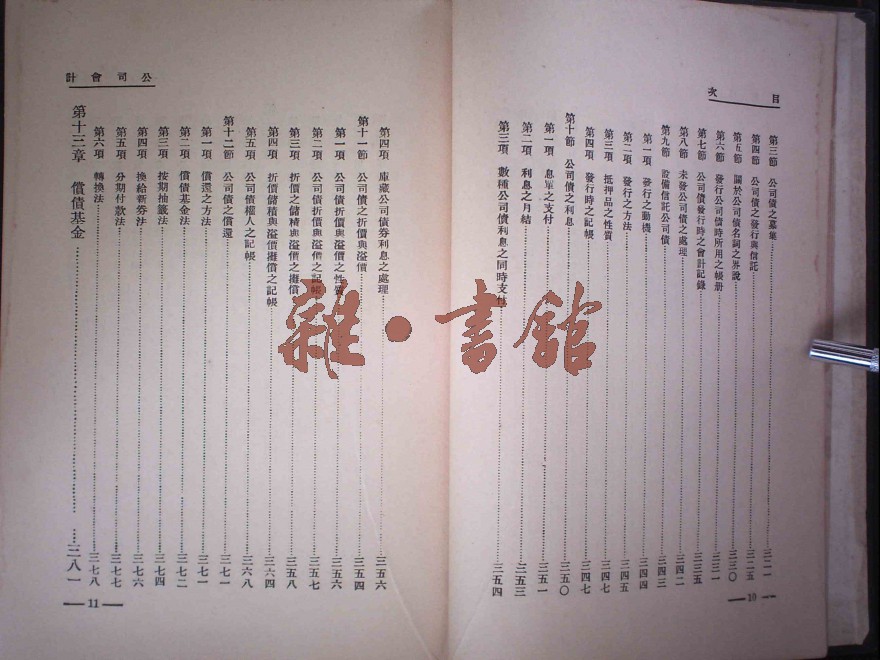 目次
第三節 公司債之募集 三二一
第四節 公司債之發行與信託 三二五
第五節 關於公司債名詞之界說 三三〇
第六節 發行公司債時所用之帳册 三三一
第七節 公司債發行時之會計記錄 三三五
第八節 未發公司債之處理 三四二
第九節 設備信託公司債 三四三
第一項 發行之動機 三四四
第二項 發行之方法 三四五
第三項 抵押品之性質 三四七
第四項 發行時之記帳 三四七
第十節 公司債之利息 三五〇
第一項 息單之支付 三五一
第二項 利息之月結 三五三
第三項 數種公司債利息之同時支付 三五四
10
公司會計
第四項 庫藏公司債券利息之處理 三五六
第十一節 公司債之折價與溢價 三五四
第一項 公司債折價與溢價之性質 三五六
第二項 公司債折價與溢價之記帳 三五七
第三項 折價之儲積與溢價之攤償 三五八
第四項 折價儲積與溢價攤償之記帳 三六四
第五項 公司債權人之記帳 三六八
第十二節 公司債之償還 三七一
第一項 償還之方法 三七一
第二項 償債基金法 三七二
第三項 按期抽籤法 三七四
第四項 換給新券法 三七六
第五項 分期付款法 三七七
第六項 轉換法 三七八
第十三章 償債基金 三八一
11
雜·書館